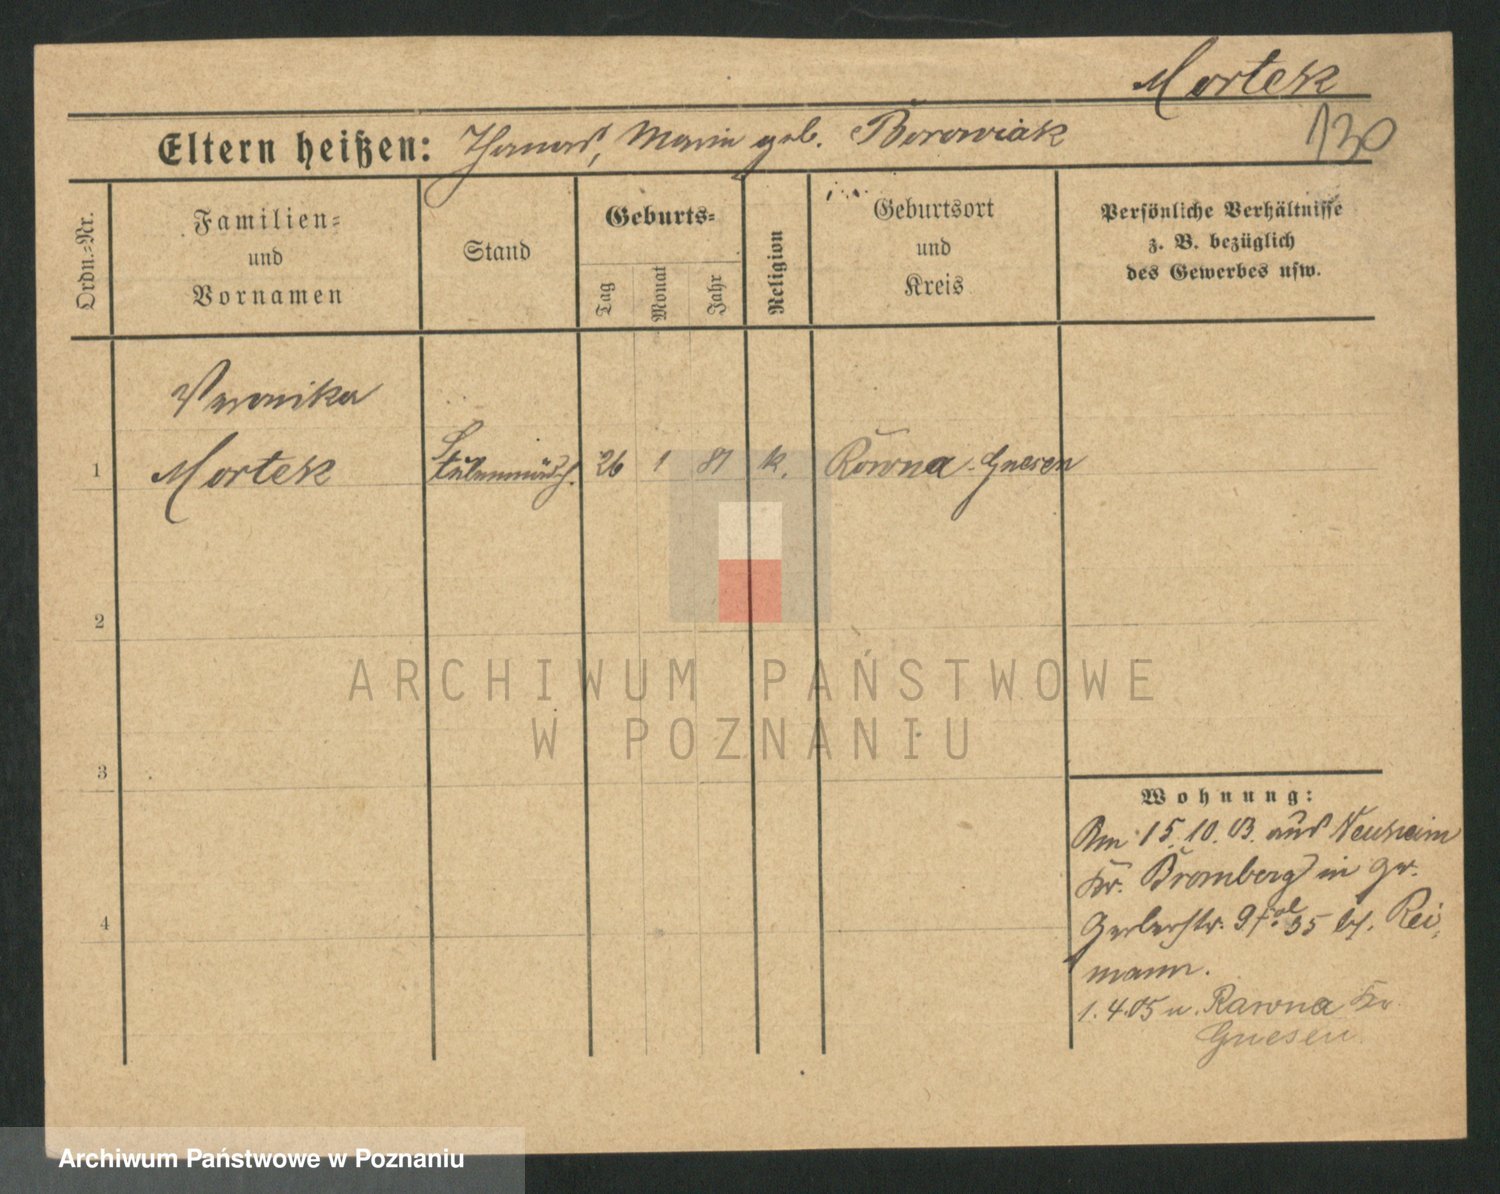 Mortek
130
Eltern heißen: Thomas, Marie geb. Borowiak
Ordn.-Nr.
Familien-
und
Vornamen
Stand
Geburts-
Tag
Monat
Jahr
Religion
Geburtsort
und
Kreis
Persönliche Verhältnisse
z. B. bezüglich
des Gewerbes usw.
Veronika
1 Mortek 26 1 81 k. Rowna-Gnesen
2
3
4
Wohnung:
Am 15.10.03. aus Neuheim
Kr. Bromberg in
Gerberstr. 9 35 b. Rei-
mann.
1.4.05 n. Rawna Kr
Gnesen
ARCHIWUM PAŃSTWOWE
W POZNANIU
Archiwum Państwowe w Poznaniu